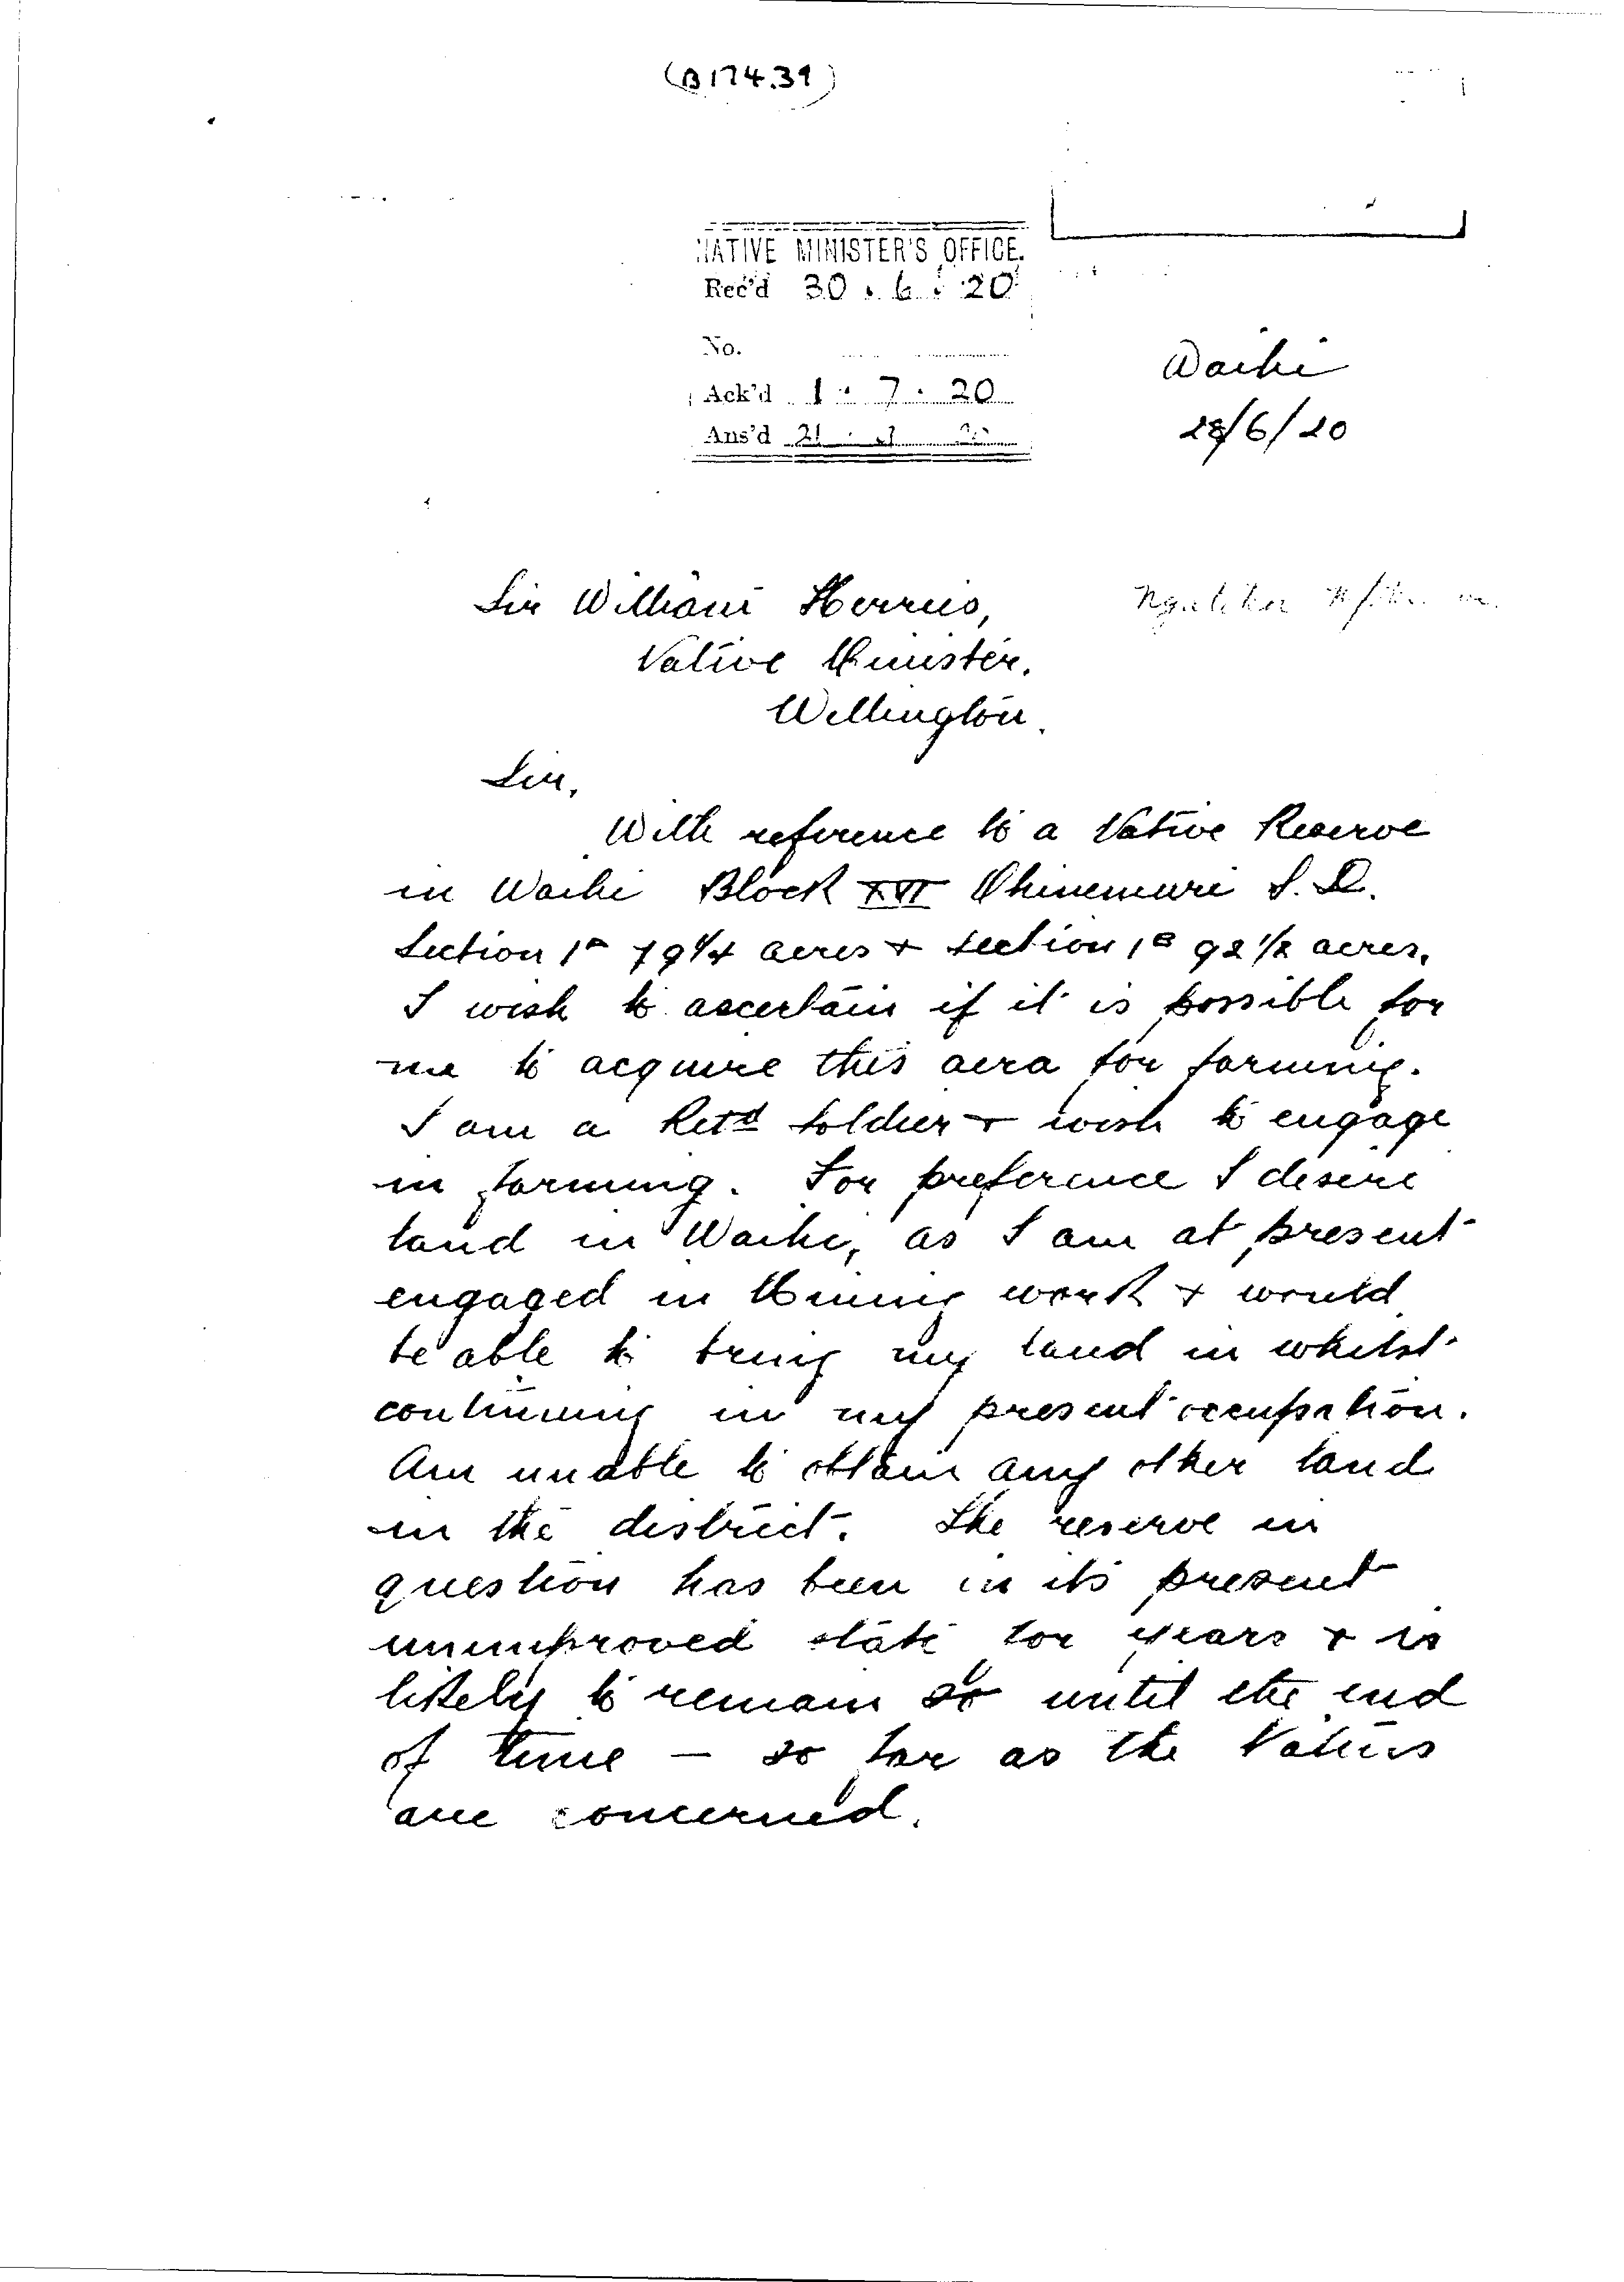 (B174.39)
NATIVE MINISTER'S OFFICE.
Rec'd 30 . 6 . 20
No.
Ack'd 1 . 7 . 20
Ans'd 21
Waihi
28/6/20
Sir William Herries,
Native Minister.
Wellington.
Sir,
With reference to a Native Reserve
in Waihi Block XVI Ohinemuri S.D.
Section 1ᴬ 79¼ acres + section 1ᴮ 92½ acres.
I wish to ascertain if it is possible for
me to acquire this aera for farming.
I am a Retd soldier + wish to engage
in farming. For preference I desire
land in Waihi, as I am at present
engaged in Mining work + would
be able to bring my land in whilst
continuing in my present occupation.
Am unable to obtain any other land
in the district. The reserve in
question has been in its present
unimproved state for years + is
likely to remain so until the end
of time – so far as the Natives
are concerned.